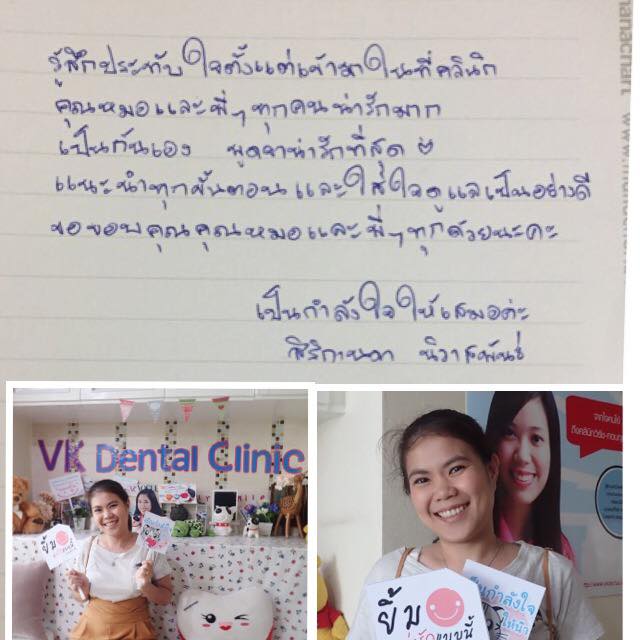 รู้สึกประทับใจตั้งแต่เข้ามาในที่คลินิก
คุณหมอและพี่ๆทุกคนน่ารักมาก
เป็นกันเอง พูดจาน่ารักที่สุด
แนะนำทุกขั้นตอนและใส่ใจดูแลเป็นอย่างดี
ขอขอบคุณคุณหมอและพี่ๆทุกด้วยนะคะ
เป็นกำลังใจให้เสมอค่ะ
VK Dental Clinic
ยิ้ม
ยิ้ม
แบบนี้
เป็นกำลังใจ
ให้นิว
จากใจคนไข้